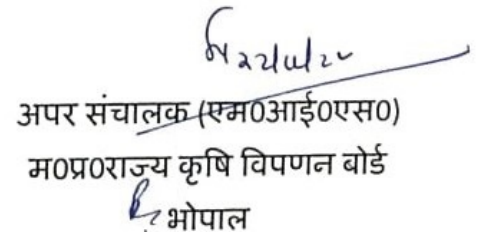 अपर संचालक (एम0आई0एस0)
म0प्र0राज्य कृषि विपणन बोर्ड
भोपाल